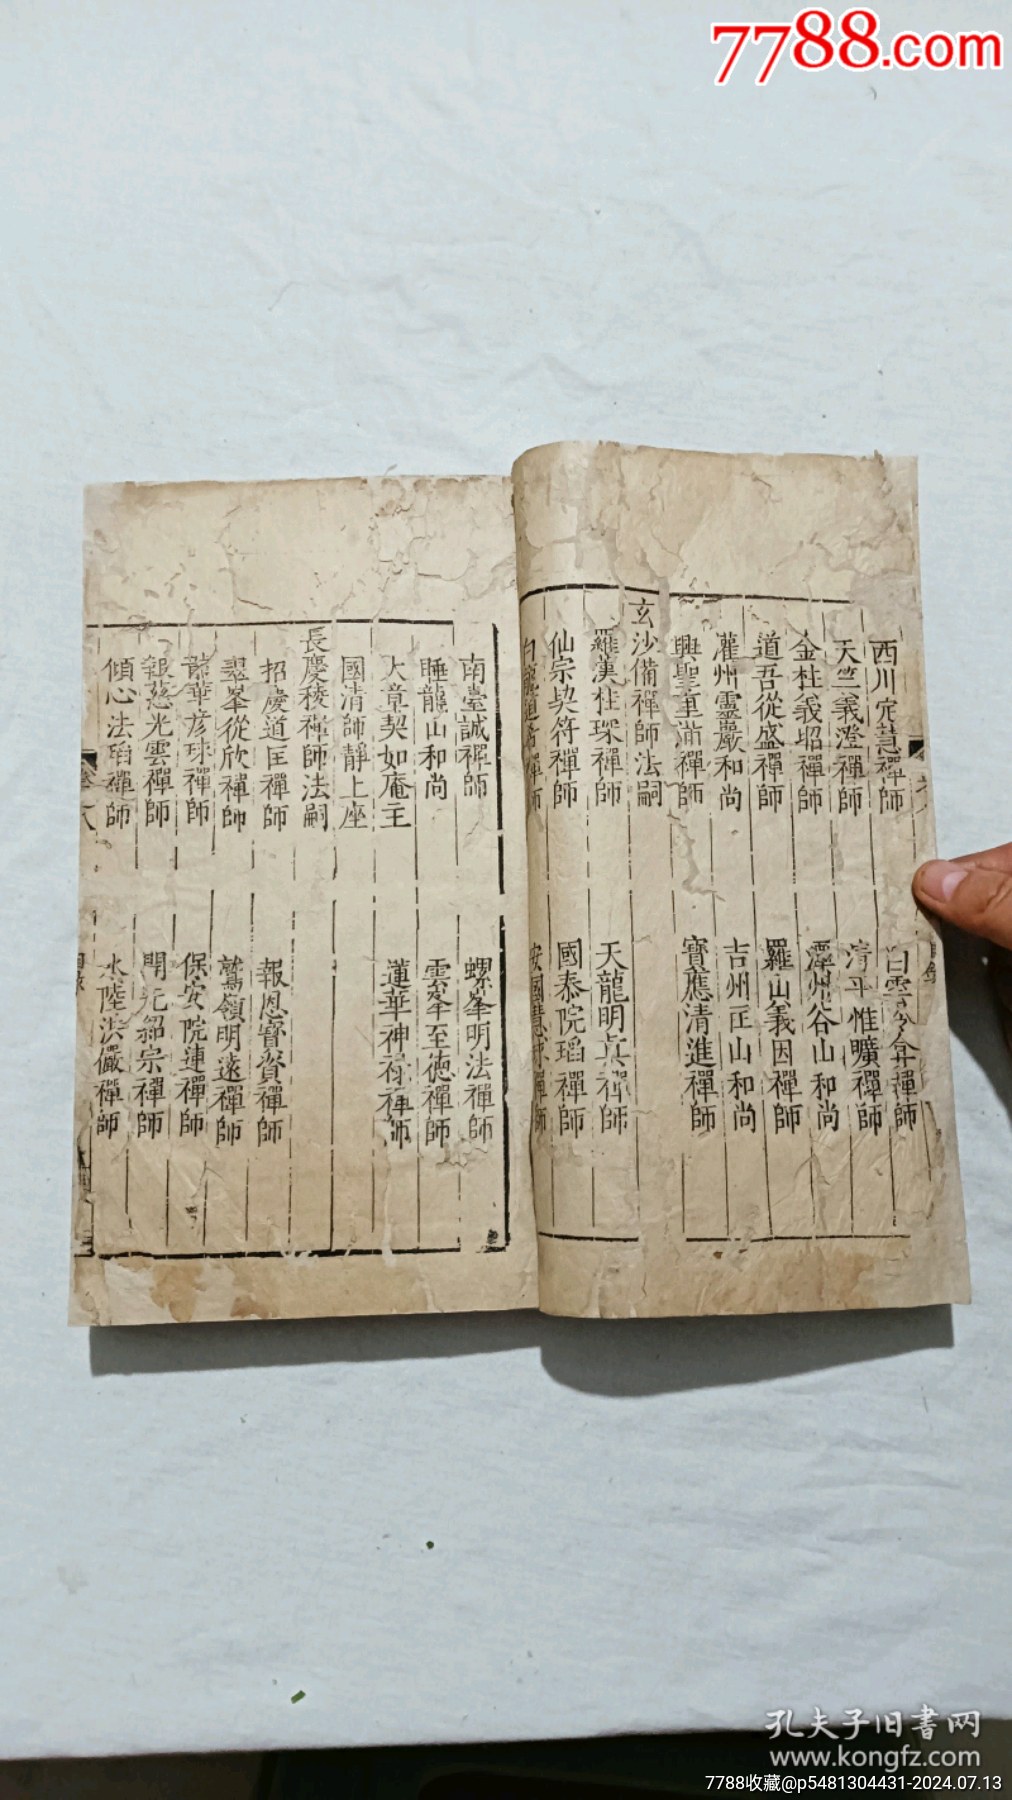 7788.com
西川定慧禪師 白雲令弇禪師
天竺義澄禪師 清平惟曠禪師
金柱義昭禪師 潭州谷山和尚
道吾從盛禪師 羅山義因禪師
灌州靈巖和尚 吉州匡山和尚
興聖重滿禪師 寶應清進禪師
玄沙備禪師法嗣
羅漢桂琛禪師 天龍明真禪師
仙宗契符禪師 國泰院瑫禪師
白龍道希禪師 安國慧球禪師
南臺誠禪師 螺峯明法禪師
睡龍山和尚 雲峯至德禪師
大章契如庵主 蓮華神祿禪師
國清師靜上座
長慶稜禪師法嗣
招慶道匡禪師 報恩寶資禪師
翠峯從欣禪師 鷲嶺明遠禪師
龍華彥球禪師 保安院連禪師
報慈光雲禪師 開先紹宗禪師
傾心法瑫禪師 水陸洪儼禪師
卷八
目錄
孔夫子旧書网
www.kongfz.com
7788收藏@p5481304431-2024.07.13